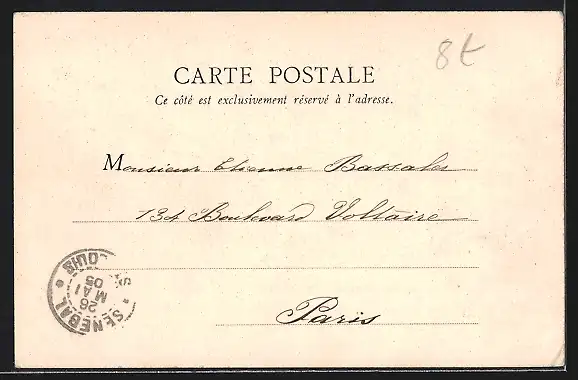 8t
CARTE POSTALE
Ce côté est exclusivement réservé à l'adresse.
Monsieur Etienne Bassales
134 Boulevard Voltaire
Paris
ST LOUIS
26
MAI
05
SÉNÉGAL